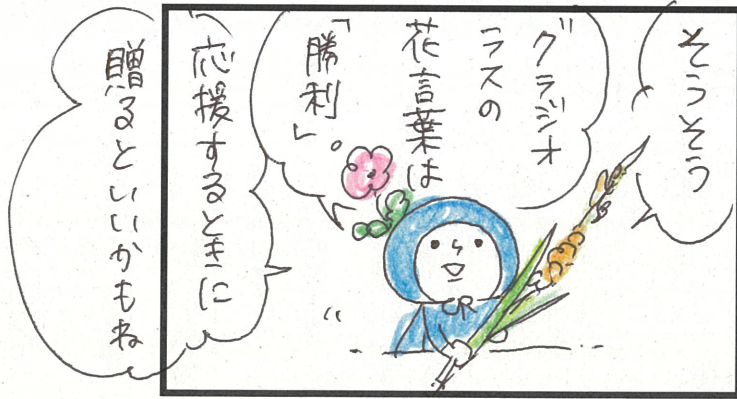 そうそう
グラジオ
ラスの
花言葉は
「勝利」。
応援するときに
贈るといいかもね